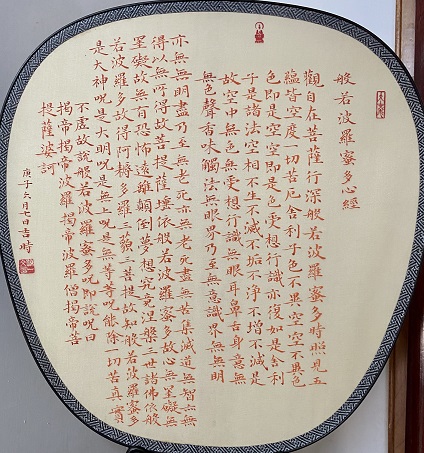 般若波羅蜜多心經
觀自在菩薩行深般若波羅蜜多時照見五
蘊皆空度一切苦厄舍利子色不異空空不異色
色即是空空即是色受想行識亦復如是舍利
子是諸法空相不生不滅不垢不淨不增不減是
故空中無色無受想行識無眼耳鼻舌身意無
無色聲香味觸法無眼界乃至無意識界無無明
亦無無明盡乃至無老死亦無老死盡無苦集滅道無智亦無
得以無所得故菩提薩埵依般若波羅蜜多故心無罣礙無
罣礙故無有恐怖遠離顛倒夢想究竟涅槃三世諸佛依般
若波羅多故得阿耨多羅三藐三菩提故知般若波羅蜜多
是大神咒是大明咒是無上咒是無等等咒能除一切苦真實
不虛故說般若波羅蜜多咒即說咒曰
揭帝揭帝波羅揭帝波羅僧揭帝菩
提薩婆訶
庚子六月七日吉時